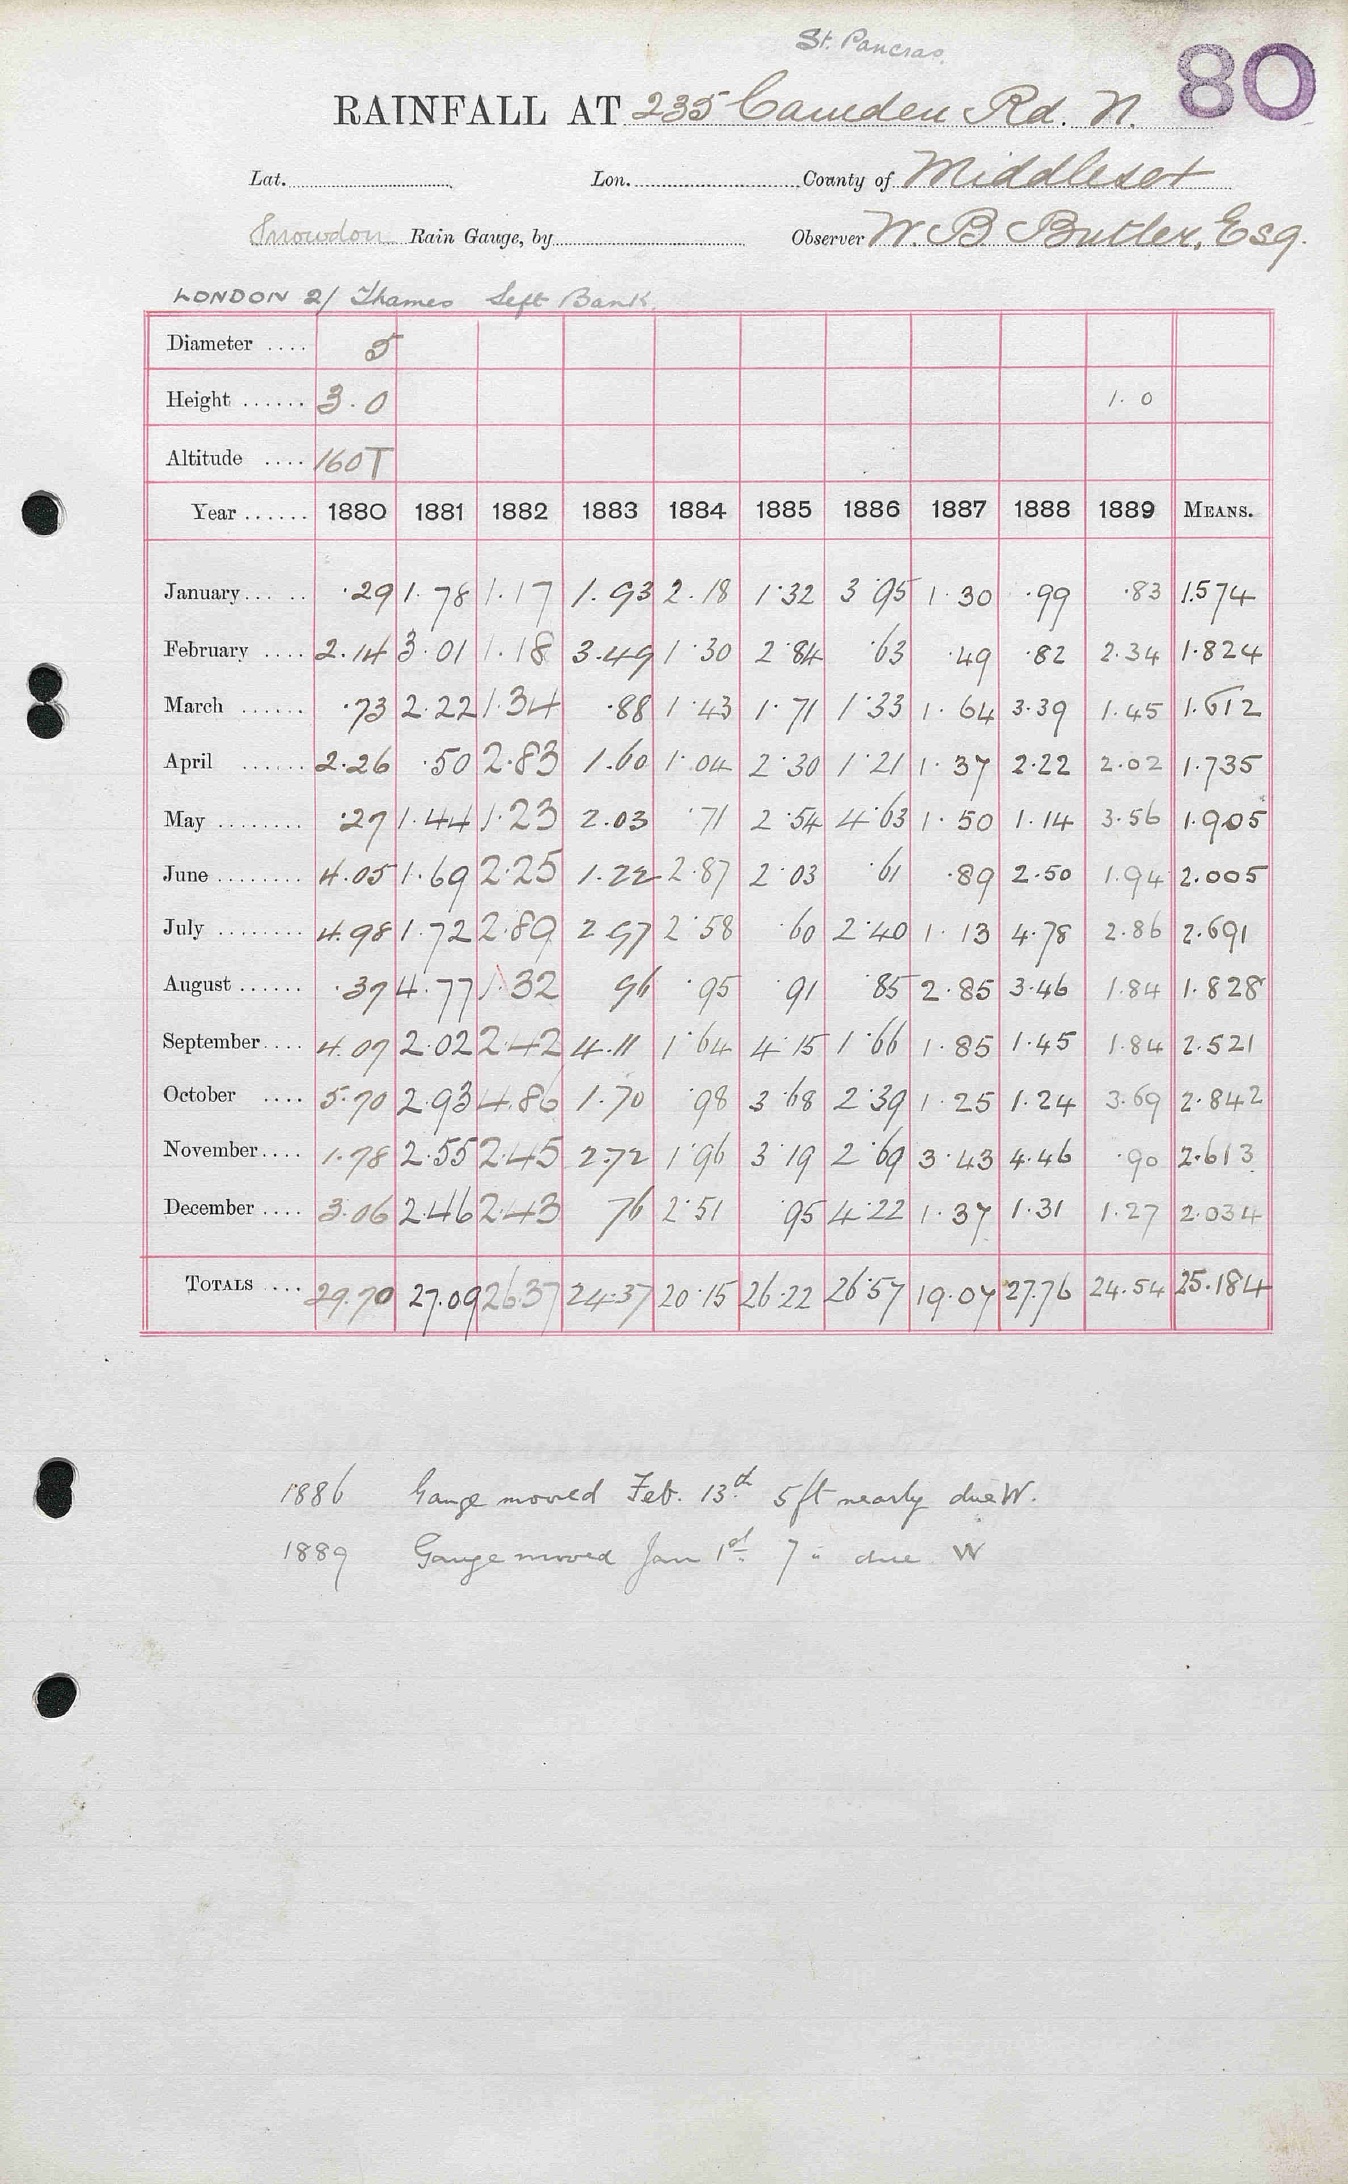 St. Pancras.
80
RAINFALL AT 235 Camden Rd. N.
Lat. Lon. County of Middlesex
Snowdon Rain Gauge, by Observer W. B. Butler, Esq.
LONDON 2/ Thames Left Bank.
Diameter .... 5
Height ...... 3.0 1.0
Altitude .... 160T
Year ...... 1880 1881 1882 1883 1884 1885 1886 1887 1888 1889 MEANS.
January ... .. .29 1.78 1.17 1.93 2.18 1.32 3.95 1.30 .99 .83 1.574
February .... 2.14 3.01 1.18 3.49 1.30 2.84 .63 .49 .82 2.34 1.824
March ...... .73 2.22 1.34 .88 1.43 1.71 1.33 1.64 3.39 1.45 1.612
April ...... 2.26 .50 2.83 1.60 1.04 2.30 1.21 1.37 2.22 2.02 1.735
May ........ .27 1.44 1.23 2.03 .71 2.54 4.63 1.50 1.14 3.56 1.905
June ........ 4.05 1.69 2.25 1.22 2.87 2.03 .61 .89 2.50 1.94 2.005
July ........ 4.98 1.72 2.89 2.97 2.58 .60 2.40 1.13 4.78 2.86 2.691
August ...... .37 4.77 1.32 96 .95 .91 .85 2.85 3.46 1.84 1.828
September .... 4.07 2.02 2.42 4.11 1.64 4.15 1.66 1.85 1.45 1.84 2.521
October .... 5.70 2.93 4.86 1.70 .98 3.68 2.39 1.25 1.24 3.69 2.842
November .... 1.78 2.55 2.45 2.72 1.96 3.19 2.69 3.43 4.46 .90 2.613
December .... 3.06 2.46 2.43 76 2.51 .95 4.22 1.37 1.31 1.27 2.034
TOTALS ... 29.70 27.09 26.37 24.37 20.15 26.22 26.57 19.07 27.76 24.54 25.184
1886 Gauge moved Feb. 13th 5 ft nearly due W.
1889 Gauge moved Jan 1st 7 " due W